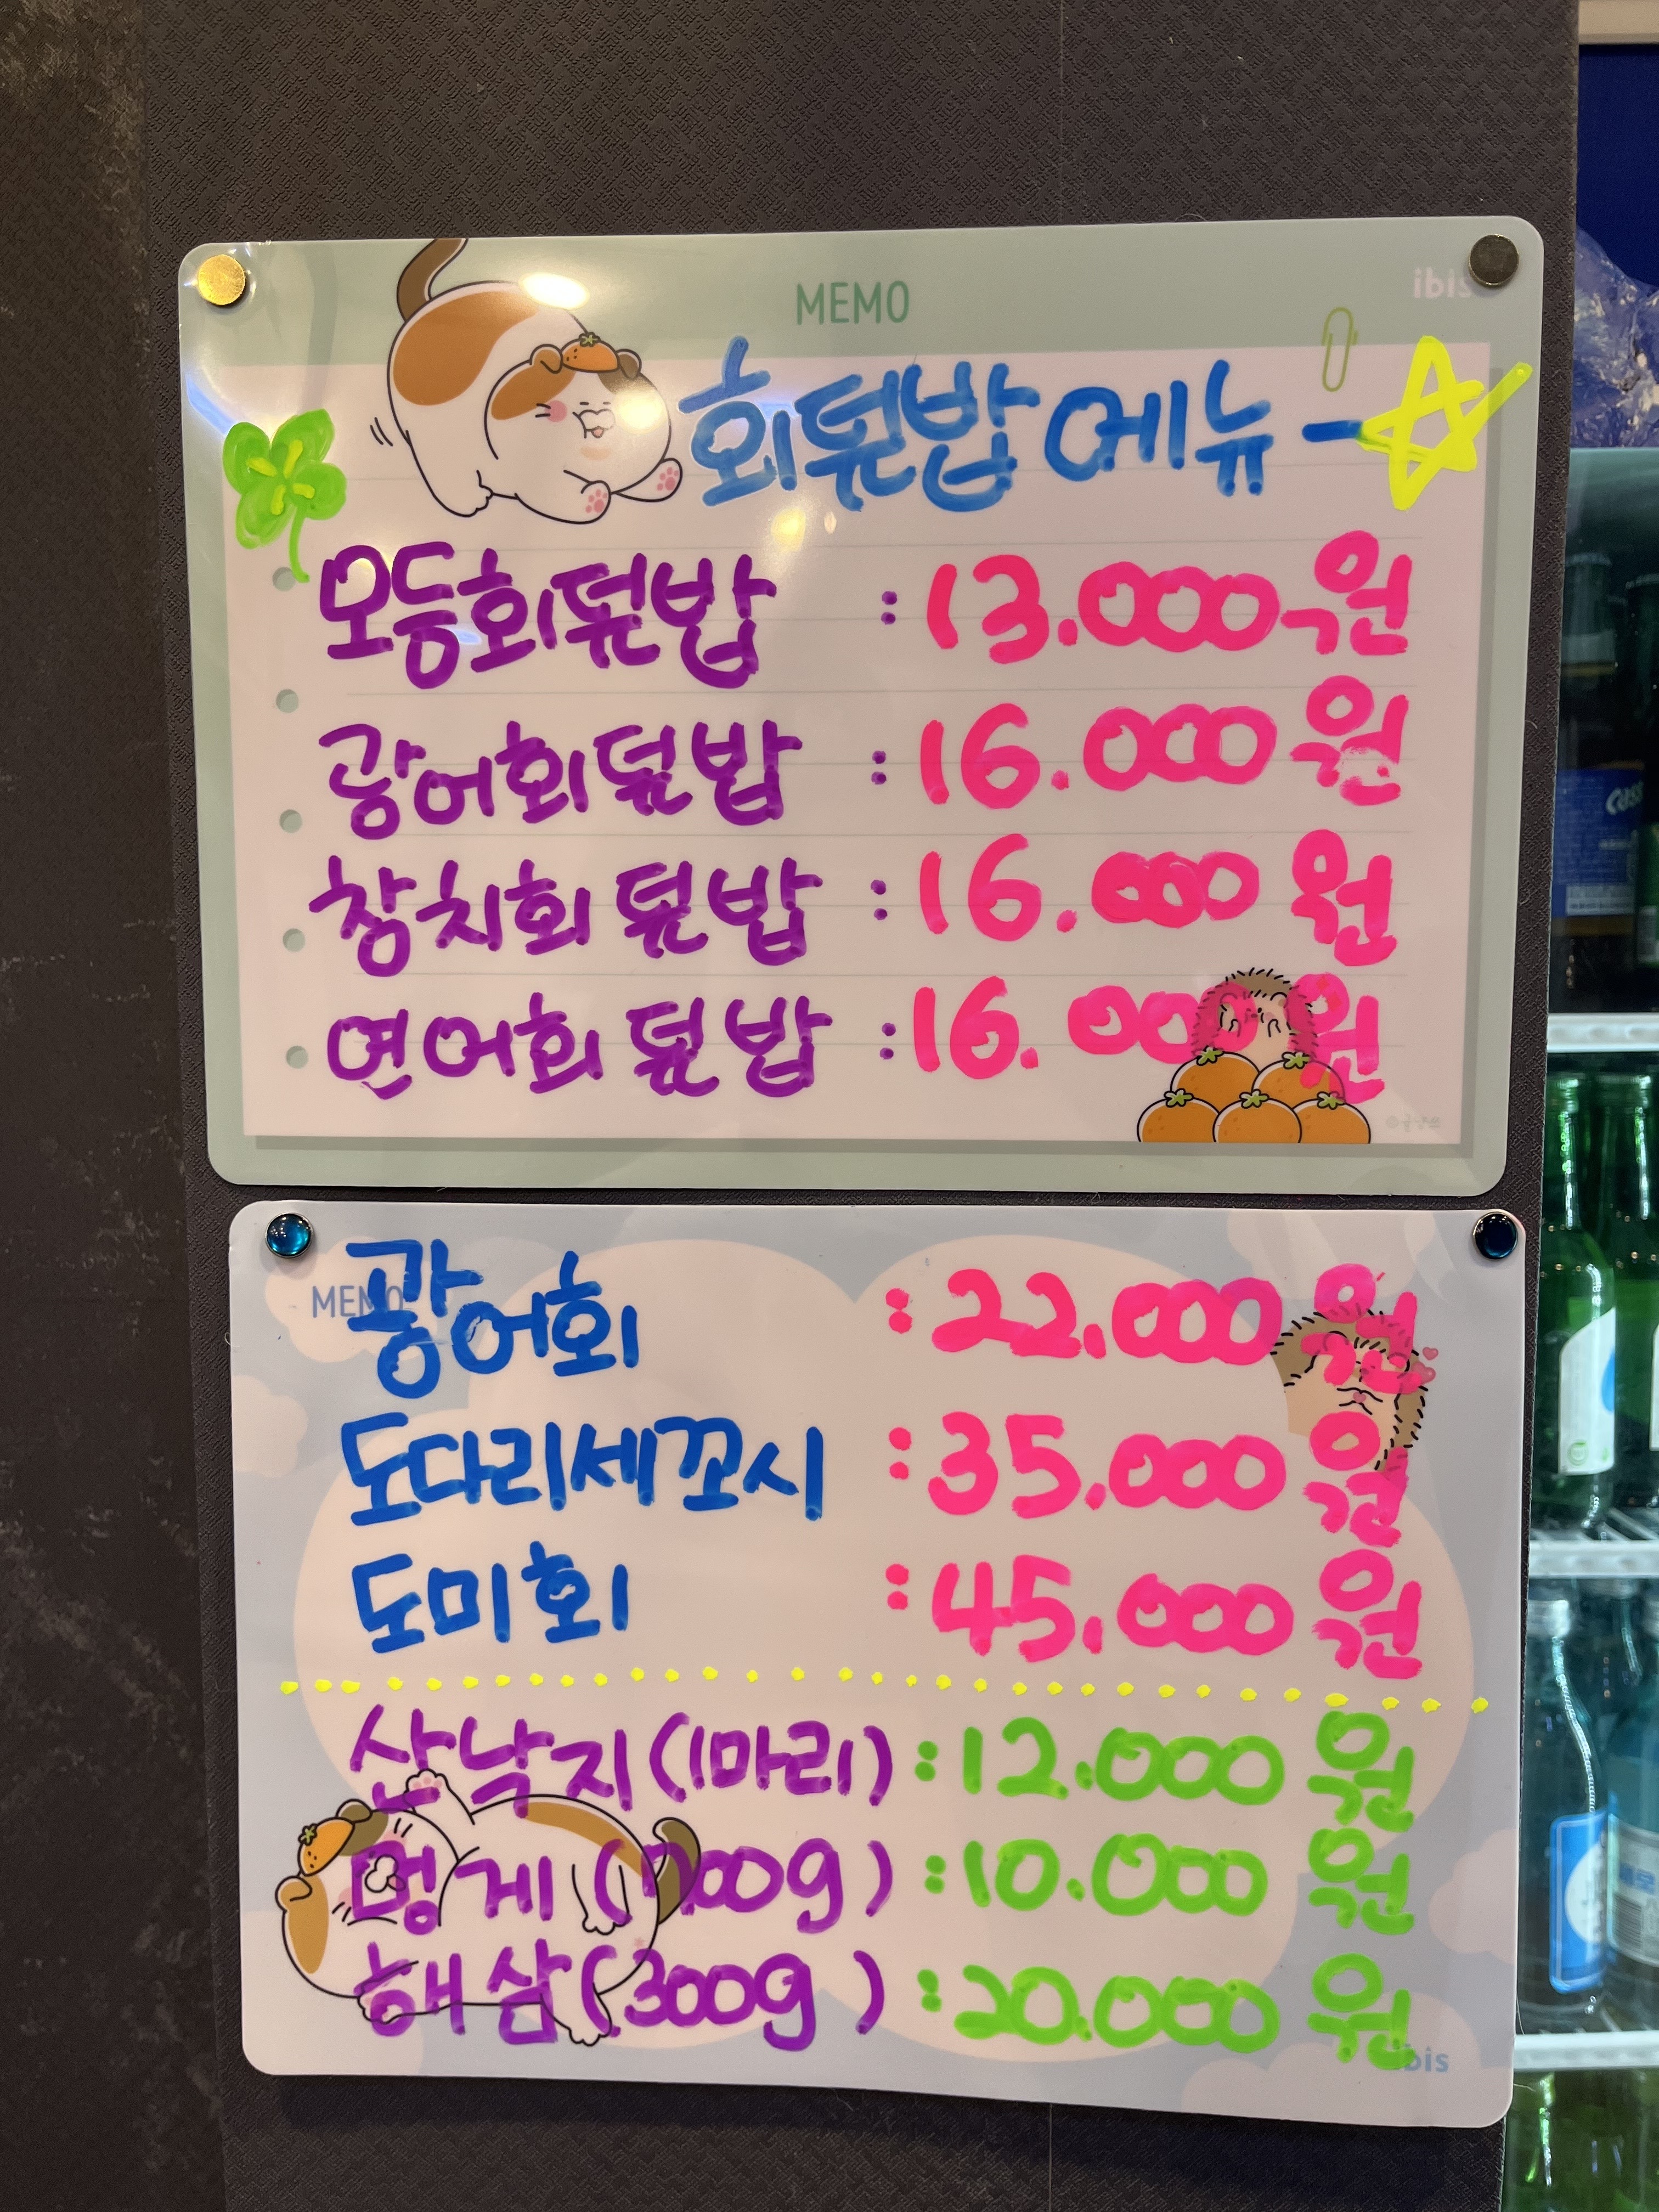 MEMO
ibis
회덮밥 메뉴 -
모듬회덮밥 : 13.000원
광어회덮밥 : 16.000원
참치회덮밥 : 16.000원
연어회덮밥 : 16.000원
MEMO
광어회 : 22,000원
도다리세꼬시 : 35,000원
도미회 : 45,000원
산낙지(1마리) : 12.000원
멍게 ( : 10.000원
해삼(300g) : 20.000원
ibis
Cass